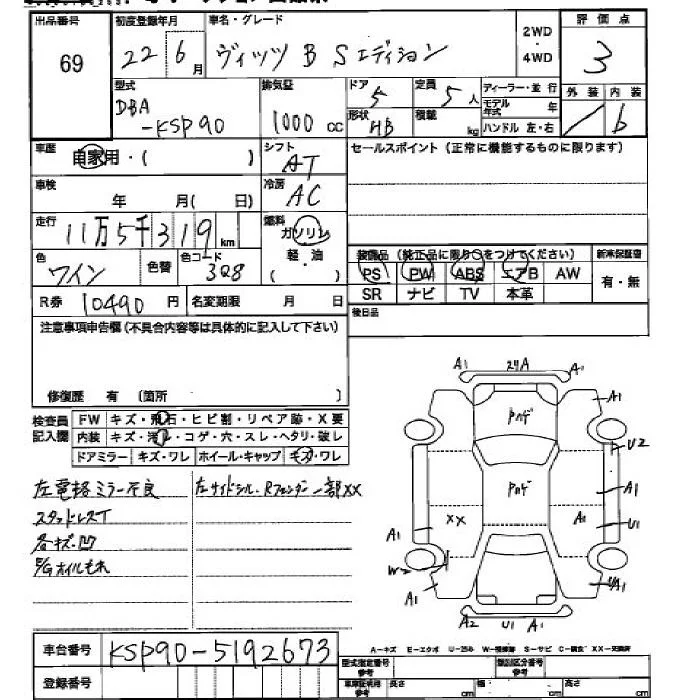 出品番号 初度登録年月 車名・グレード 2WD・4WD 評価点
69 22 6月 ヴィッツ B Sエディション 3
型式 排気量 ドア 5 定員 5人 ディーラー・並行 外装 内装
DBA-KSP90 1000cc 形状 HB 積載 kg モデル年式 年 ハンドル 左・右 b
車歴 自家用・( ) シフト AT セールスポイント(正常に機能するものに限ります)
車検 年 月( 日) 冷房 AC
走行 11万5千319km 燃料 ガソリン
軽・油
( )
色 ワイン 色替 色コード 3Q8
装備品(純正品に限り○をつけてください) 新車保証書
PS PW ABS エアB AW 有・無
SR ナビ TV 本革
R券 10490円 名変期限 月 日 後日品
注意事項申告欄(不具合内容等は具体的に記入して下さい)
修復歴 有 〔箇所 〕
検査員記入欄 FW キズ・飛石・ヒビ割・リペア跡・X要
内装 キズ・汚レ・コゲ・穴・スレ・ヘタリ・破レ
ドアミラー キズ・ワレ ホイール・キャップ キズ・ワレ
左電格ミラー不良 左サイドシル・Rフェンダー一部XX
スタッドレスT
各キズ・凹
A1 A1
A1
U2
A1
XX A1 U1
A1
W2
A1 UA1
A2 U1 A1
車台番号 KSP90-5192673
登録番号
A-キズ E-エクボ
型式指定番号 類別区分番号
長さ cm 幅 cm 高さ cm